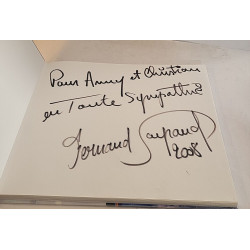 Pour Anny et Christian
en Toute Sympathie
2008